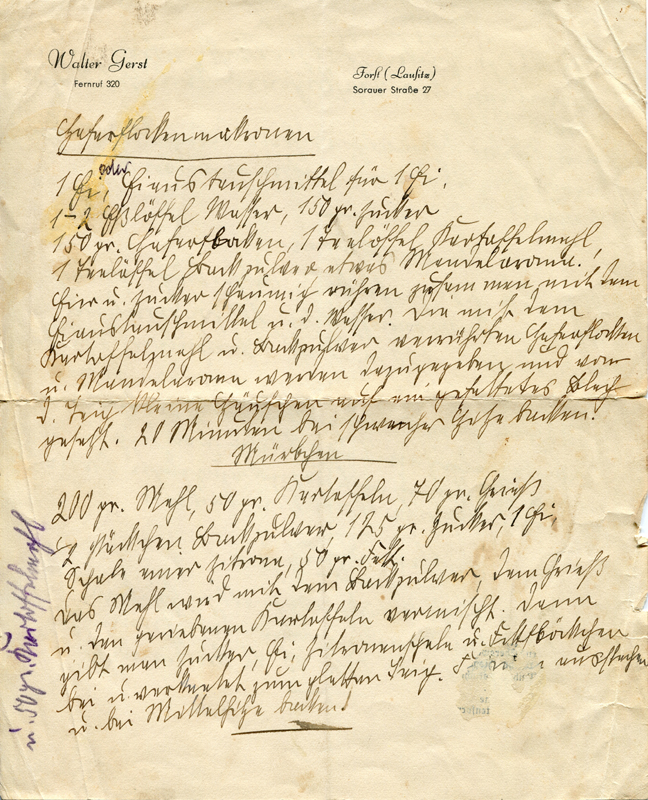 Walter Gerst
Fernruf 320
Forst (Lausitz)
Sorauer Straße 27
Haferflockenmakronen
1 Ei, oder Eiaustauschmittel für 1 Ei,
1-2 Eßlöffel Wasser, 150 gr. Zucker
150 gr. Haferflocken, 1 Teelöffel Kartoffelmehl,
1 Teelöffel Backpulver etwas Mandelaroma.
Eier u. Zucker schaumig rühren zusammen mit dem
Eiaustauschmittel u. d. Wasser. Die mit dem
Kartoffelmehl u. Backpulver verrührten Haferflocken
u. Mandelaroma werden dazugegeben und vom
d. Teig kleine Häufchen auf ein gefettetes Blech
gesetzt. 20 Minuten bei schwacher Hitze backen.
Mürbchen
200 gr. Mehl, 50 gr. Kartoffeln, 70 gr. Grieß
½ Päckchen Backpulver, 125 gr. Zucker, 1 Ei,
Schale einer Zitrone, 50 gr. Fett.
Das Mehl wird mit dem Backpulver, dem Grieß
u. den geriebenen Kartoffeln vermischt. Dann
gibt man Zucker, Ei, Zitronenschale u. Fettflöckchen
bei u. verknetet zum glatten Teig. ausstechen
u. bei Mittelhitze backen.
u. 50 gr. Kartoffelmehl